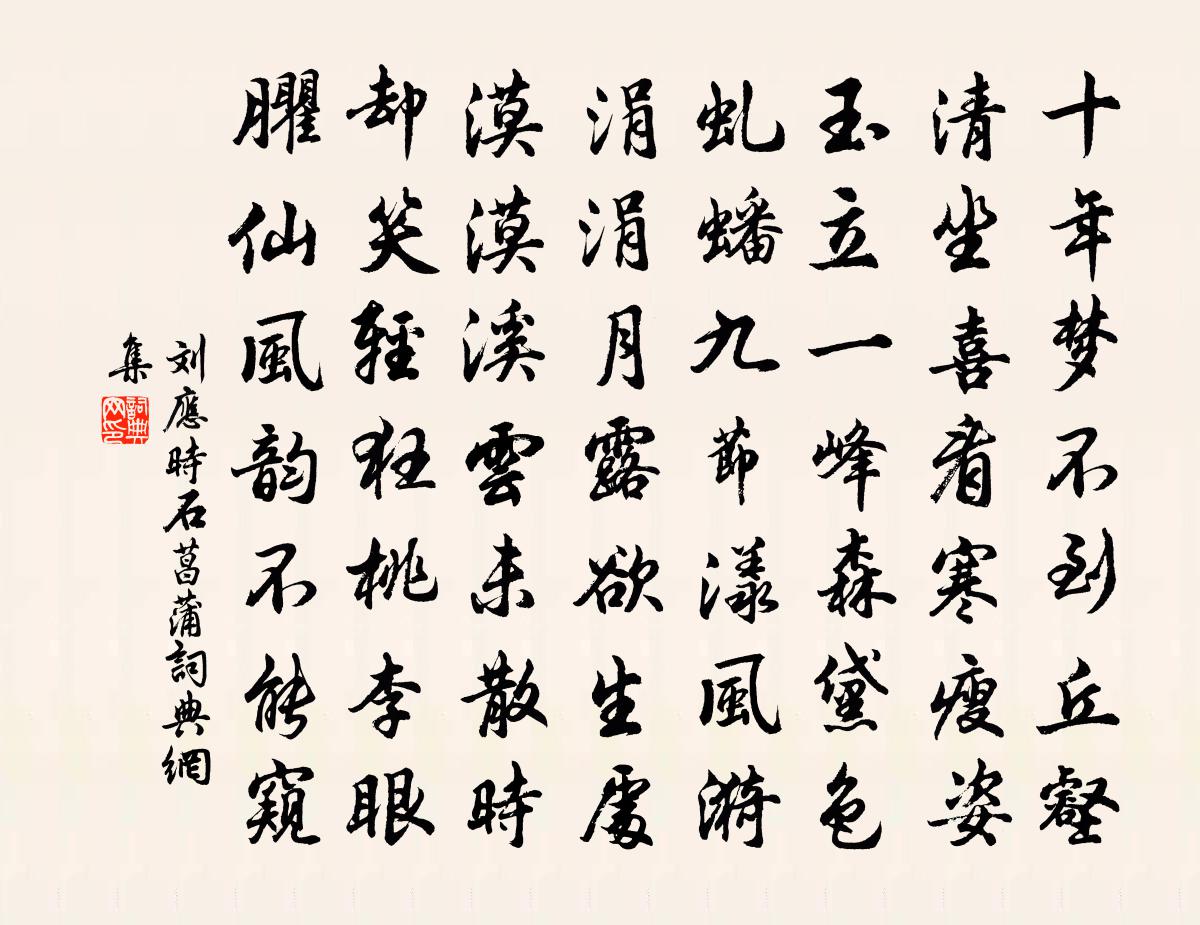 十年梦不到丘壑
清坐喜看寒瘦姿
玉立一峰森黛色
虬蟠九節漾風漪
涓涓月露欲生處
漠漠溪雲未散時
却笑輕狂桃李眼
臞仙風韵不能窺
刘應時石菖蒲詞典網
集
詞典
网印